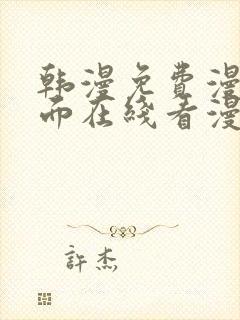 韩漫免费漫
而在线看漫
許杰